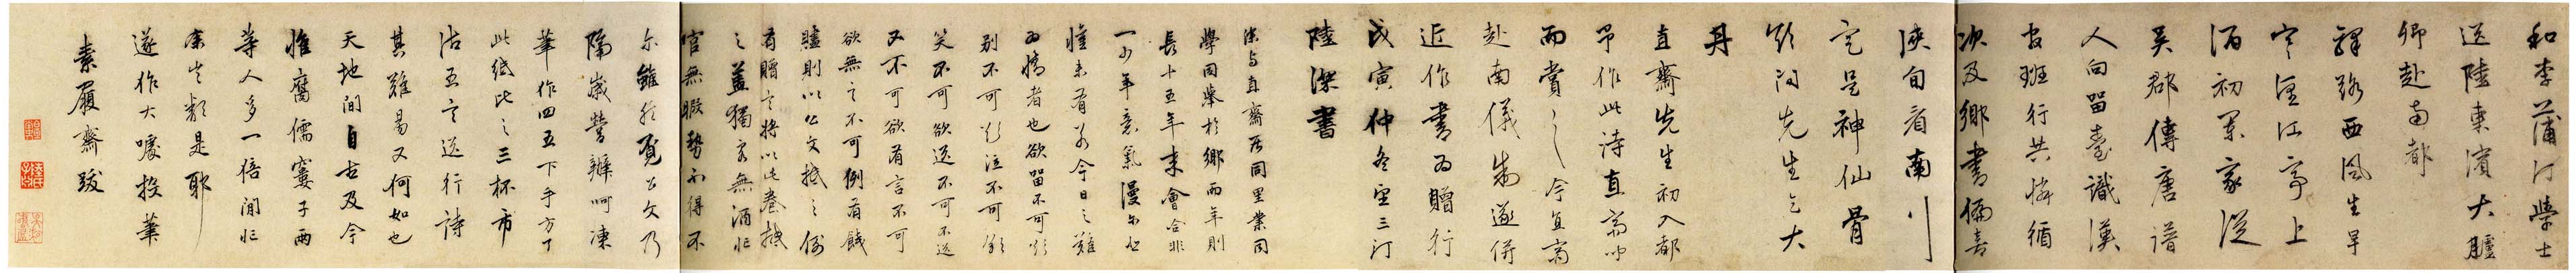 和李蒲汀學士
送陸東濱大臚
卿赴南都
驛路西風生早
寒潞江亭上
酒初闌家從
吳郡傳唐譜
人向留臺識漢
官班行共憐循
次及鄉書偏喜
浹旬看南川
定是神仙骨
欲問先生乞大
丹
直齋先生初入都
予作此詩直齋聞
而賞之今直齋
赴南儀制遂併
近作書為贈行
戊寅仲冬望三日
陸深書
深與直齋居同里業同
學同舉於鄉而年則
長十五年來會合非
一少年意氣漫爾也
惟未有若今日之難
為情者也欲留不可
別不可欲泣不可欲
笑不可欲送不可不送
又不可欲有言不可
欲無言不可例有餞
贐則以公文抵之例
有贈言將以此卷抵
之蓋獨客無酒
官無暇勢不得不
爾雖然覓公文乃
隔歲營辦呵凍
筆作四五下手方了
此紙比之三杯市
沽五言送行詩
其難易又何如也
天地間自古及今
惟腐儒窶子兩
等人多一倍閒忙
余豈類是耶
遂作大噱投筆
素履齋跋